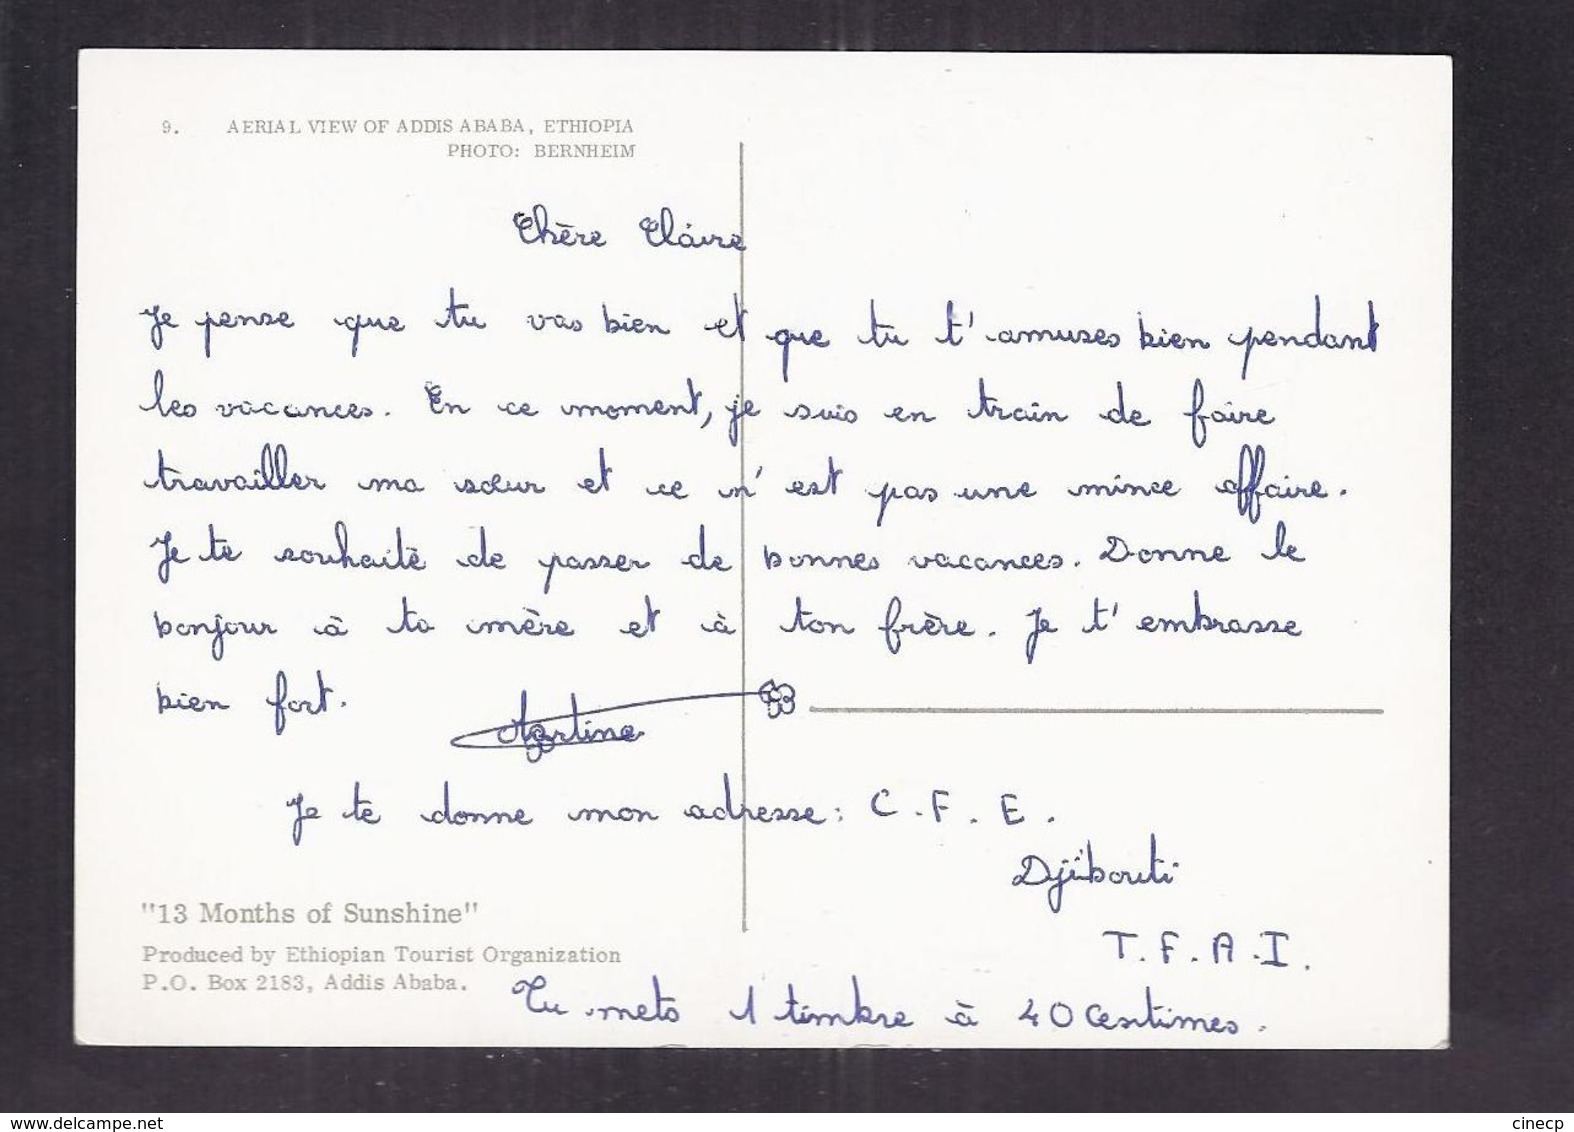 9. AERIAL VIEW OF ADDIS ABABA, ETHIOPIA
PHOTO: BERNHEIM
Chère Claire
Je pense que tu vas bien et que tu t'amuses bien pendant
les vacances. En ce moment, je suis en train de faire
travailler ma sœur et ce n'est pas une mince affaire.
Je te souhaite de passer de bonnes vacances. Donne le
bonjour à ta mère et à ton frère. Je t'embrasse
bien fort.
Martine
Je te donne mon adresse : C.F.E.
Djibouti
T.F.A.I.
"13 Months of Sunshine"
Produced by Ethiopian Tourist Organization
P.O. Box 2183, Addis Ababa.
Tu mets 1 timbre à 40 centimes.
www.delcampe.net
cinecp